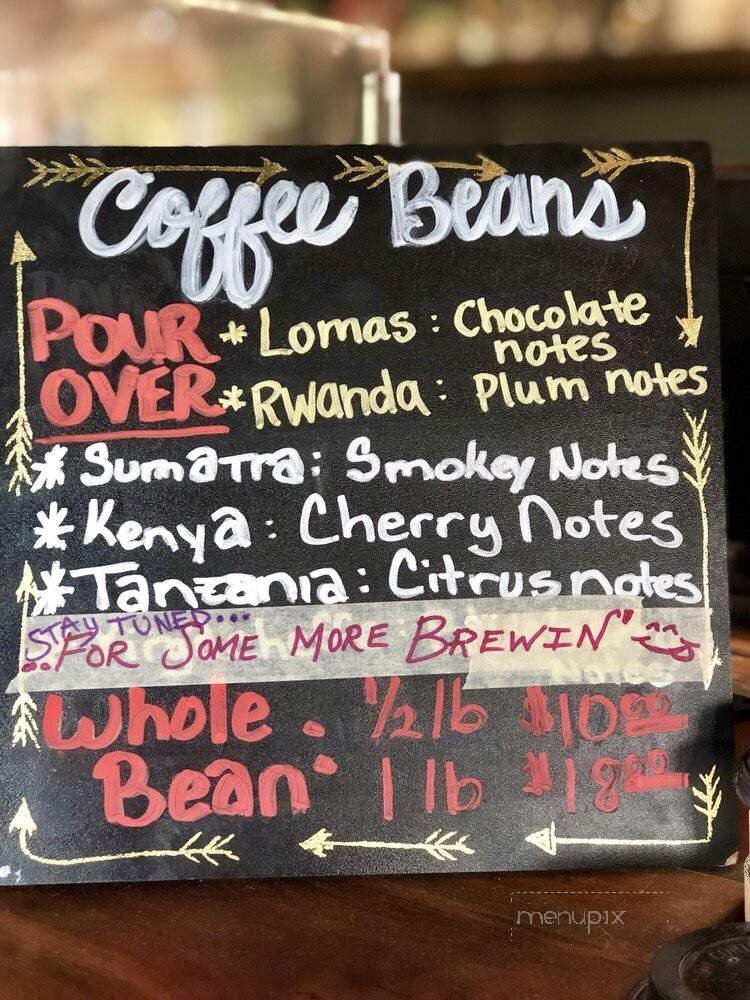 Coffee Beans
POUR OVER
* Lomas : Chocolate notes
* Rwanda : Plum notes
* Sumatra : Smokey Notes
* Kenya : Cherry Notes
* Tanzania : Citrus notes
STAY TUNED...
..FOR SOME MORE BREWIN"
Whole Bean :
1/2 lb $10.00
1 lb $18.00
menupix